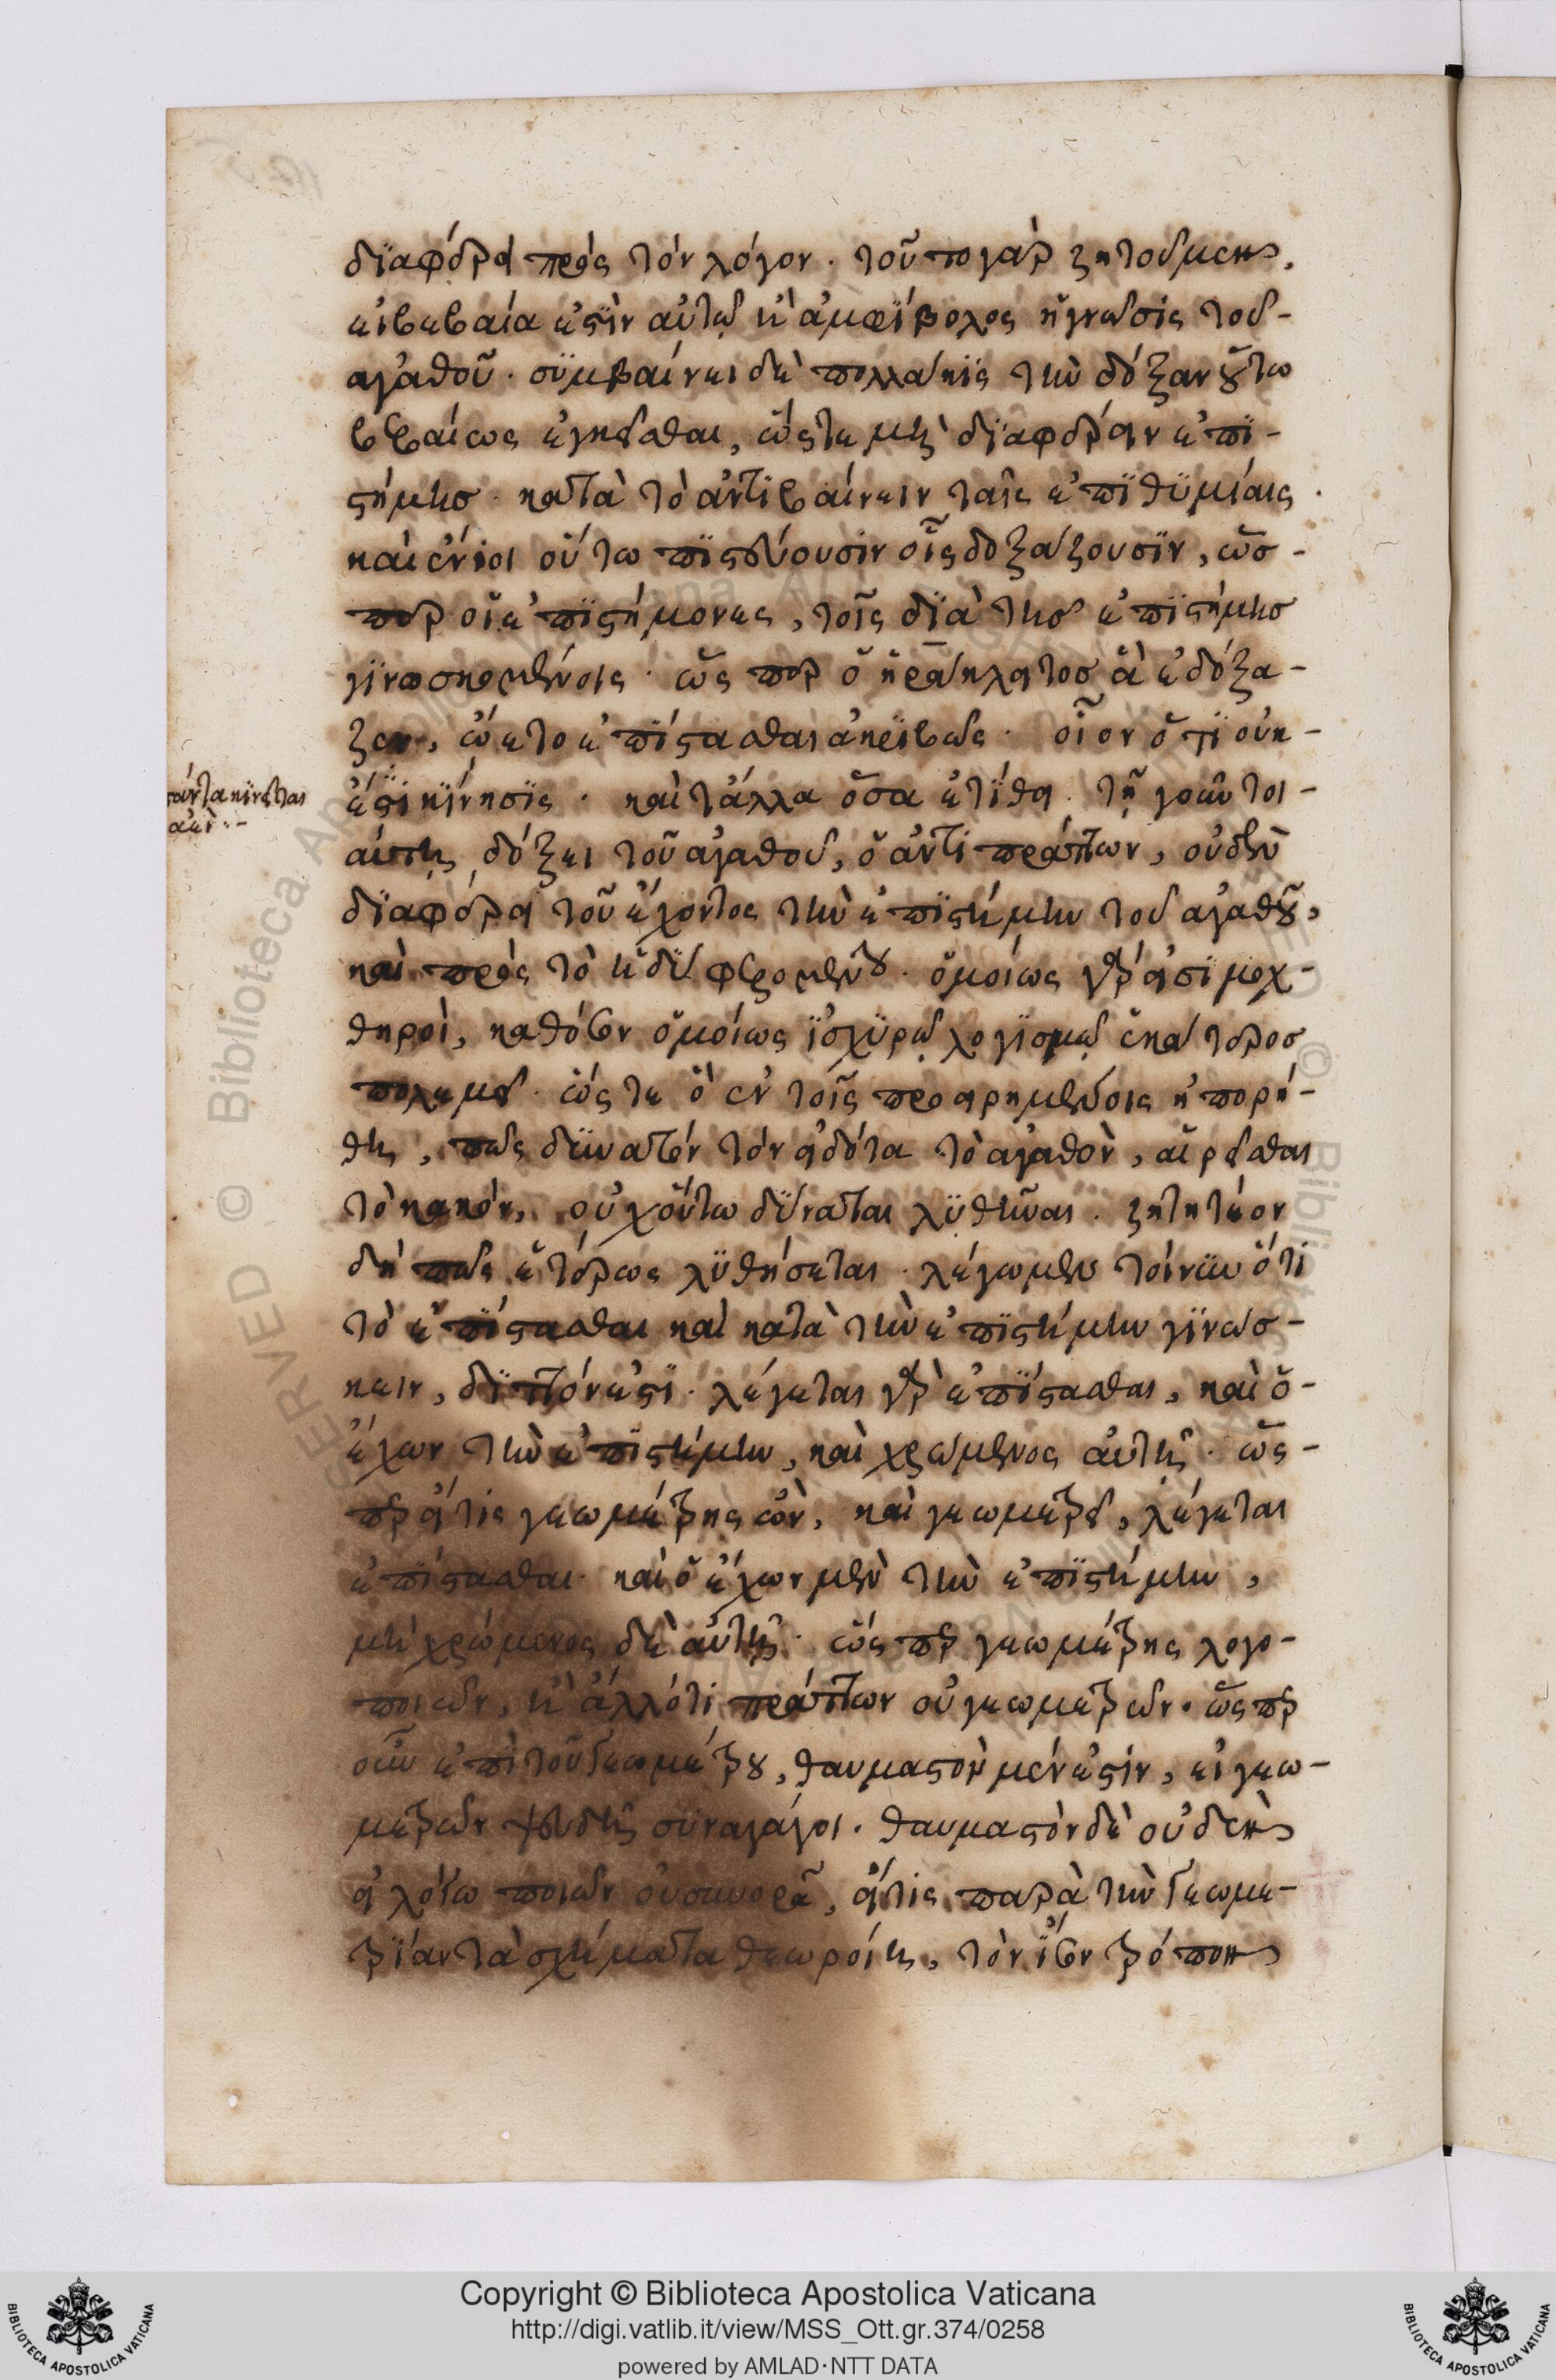 διαφέρει πρὸς τὸν λόγον. τοῦτο γὰρ ζητοῦμεν,
εἰ βεβαία ἐστὶν αὐτῷ ἢ ἀμφίβολος ἡ γνῶσις τοῦ
ἀγαθοῦ. συμβαίνει δὲ πολλάκις τὴν δόξαν οὕτω
βεβαίως ἡγεῖσθαι, ὥστε μὴ διαφέρειν ἐπι-
στήμης κατὰ τὸ ἀντιβαίνειν ταῖς ἐπιθυμίαις.
καὶ ἔνιοι οὕτω πιστεύουσιν οἷς δοξάζουσιν, ὥσ-
περ οἱ ἐπιστήμονες, τοῖς διὰ τῆς ἐπιστήμης
γινωσκομένοις. ὥσπερ ὁ ἡράκλειτος ἃ ἐδόξα-
ζεν, ᾤετο ἐπίστασθαι ἀκριβῶς. οἷον ὅτι οὐκ
ἔστι κίνησις. καὶ τἄλλα ὅσα ἐτίθει. τῇ γοῦν τοι-
αύτῃ δόξει τοῦ ἀγαθοῦ, ὁ ἀντιπράττων, οὐδὲν
διαφέρει τοῦ ἔχοντος τὴν ἐπιστήμην τοῦ ἀγαθοῦ,
καὶ πρὸς τὸ ἡδὺ φερομένου. ὁμοίως γάρ εἰσι μοχ-
θηροὶ, καθόσον ὁμοίως ἰσχυρῷ λογισμῷ ἑκάτερος
πολεμεῖ. ὥστε ὃ ἐν τοῖς προειρημένοις ἠπορή-
θη, πῶς δυνατὸν τὸν εἰδότα τὸ ἀγαθὸν, αἱρεῖσθαι
τὸ κακόν, οὐχ οὕτω δύναται λυθῆναι. ζητητέον
δὴ πῶς ἑτέρως λυθήσεται. λέγωμεν τοίνυν ὅτι
τὸ ἐπίστασθαι καὶ κατὰ τὴν ἐπιστήμην γινώσ-
κειν, διττόν ἐστι. λέγεται γὰρ ἐπίστασθαι, καὶ ὁ
ἔχων τὴν ἐπιστήμην, καὶ χρώμενος αὐτῇ. ὥσ-
περ εἴ τις γεωμέτρης ὢν, καὶ γεωμετρεῖ, λέγεται
ἐπίστασθαι. καὶ ὁ ἔχων μὲν τὴν ἐπιστήμην,
μὴ χρώμενος δὲ αὐτῇ. ὥσπερ γεωμέτρης λογο-
ποιῶν, ἢ ἄλλό τι πράττων οὐ γεωμετρῶν. ὥσπερ
οὖν ἐπὶ τοῦ γεωμέτρου, θαυμαστὸν μέν ἐστιν, εἰ γεω-
μετρῶν ψευδῆ συναγάγοι. θαυμαστὸν δὲ οὐδὲν
εἰ λόγω ποιῶν οὐ συνορᾷ, εἴ τις παρὰ τὴν γεωμε-
τρίαν τὰ σχήματα θεωροίη, τὸν ἴσον τρόπον
πάντα κινεῖται
ἀεὶ:-
Copyright © Biblioteca Apostolica Vaticana
http://digi.vatlib.it/view/MSS_Ott.gr.374/0258
powered by AMLAD·NTT DATA
BIBLIOTECA APOSTOLICA VATICANA
BIBLIOTECA APOSTOLICA VATICANA